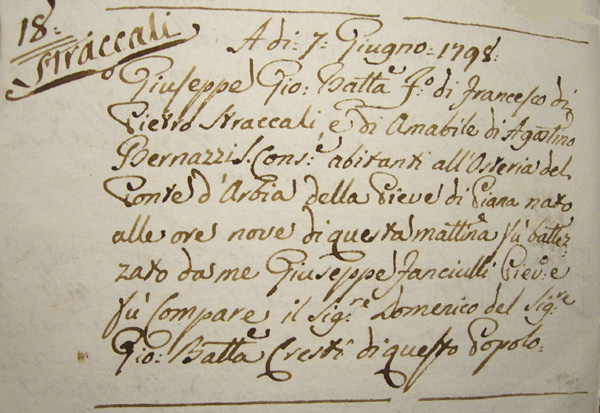 18:
Straccali
A di: 7: Giugno: 1798:
Giuseppe Gio: Batta F:o di Francesco di
Pietro Straccali, e di Amabile di Agostino
Bernazzi S. Cons:i abitanti all'Osteria del
Ponte d'Arbia della Pieve di Piana nato
alle ore nove di questa mattina fù battez-
zato da me Giuseppe Fanciulli Piev:e
fù Compare il Sig:re Domenico del Sig:re
Gio: Batta Cresti di questo Popolo.